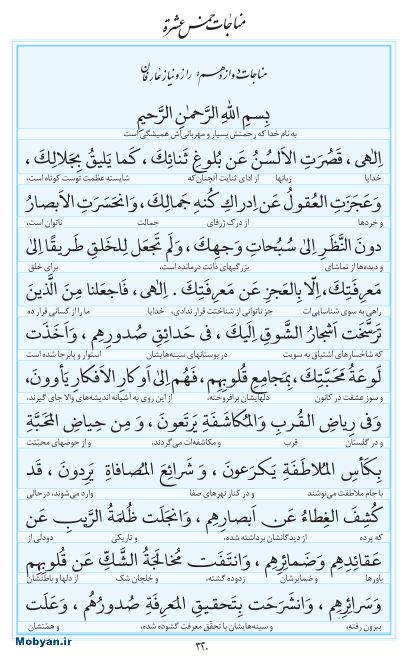 مناجات خمس عشرة
مناجات دوازدهم: راز و نیاز عارفان
بِسمِ اللّٰهِ الرَّحمٰنِ الرَّحیمِ
به نام خدا که رحمتش بسیار و مهربانی‌اش همیشگی است
اِلٰهی ، قَصُرَتِ الاَلسُنُ عَن بُلوغِ ثَنائِكَ ، كَما یَلیقُ بِجَلالِكَ ،
خدایا زبانها از ادای ثنایت آنچنان‌که شایسته عظمت توست کوتاه است،
وَ عَجَزَتِ العُقولُ عَن اِدراكِ كُنهِ جَمالِكَ، وَ انحَسَرَتِ الاَبصارُ
و خردها از درک ژرفای جمالت ناتوان است،
دونَ النَّظَرِ اِلیٰ سُبُحاتِ وَجهِكَ، وَ لَم تَجعَل لِلخَلقِ طَریقًا اِلیٰ
و دیده‌ها از تماشای بزرگیهای ذاتت درمانده است، برای خلق
مَعرِفَتِكَ، اِلّا بِالعَجزِ عَن مَعرِفَتِكَ . اِلٰهی، فَاجعَلنا مِنَ الَّذینَ
راهی به سوی شناسایی‌ات جز ناتوانی از شناختت قرار ندادی، خدایا ما را از کسانی قرار ده
تَرَسَّخَت اَشجارُ الشَّوقِ اِلَیكَ ، فی حَدائِقِ صُدورِهِم ، وَ اَخَذَت
که شاخسارهای اشتیاق به سویت در بوستانهای سینه‌هایشان استوار و پابرجا شده است
لَوعَةُ مَحَبَّتِكَ، بِمَجامِعِ قُلوبِهِم، فَهُم اِلیٰ اَوكارِ الاَفكارِ یَأوونَ،
و سوز عشقت در کانون دلهایشان برافروخته، از این روی به آشیانه اندیشه‌های والا جای گیرند،
وَ فی رِیاضِ القُربِ وَ المُكاشَفَةِ یَرتَعونَ ، وَ مِن حِیاضِ المَحَبَّةِ
و در گلستان قرب و مکاشفه‌ات می‌گردند، و از حوضهای محبّتت
بِكَأسِ المُلاطَفَةِ یَكرَعونَ ، وَ شَرائِعَ المُصافاةِ یَرِدونَ ، قَد
با جام ملاطفت می‌نوشند و در کنار نهرهای صفا وارد می‌شوند، درحالی
كُشِفَ الغِطاءُ عَن اَبصارِهِم ، وَ انجَلَت ظُلمَةُ الرَّیبِ عَن
که پرده از دیدگانشان برداشته شده، و تاریکی دودلی از
عَقائِدِهِم وَ ضَمائِرِهِم ، وَ انتَفَت مُخالَجَةُ الشَّكِّ عَن قُلوبِهِم
باورها و ضمایرشان زدوده گشته، و خلجان شک از دلها و باطنشان
وَ سَرائِرِهِم ، وَ انشَرَحَت بِتَحقیقِ المَعرِفَةِ صُدورُهُم ، وَ عَلَت
بیرون رفته، و سینه‌هایشان با تحقّق معرفت گشوده شده، و همّتشان
۳۲۰
Mobyan.ir